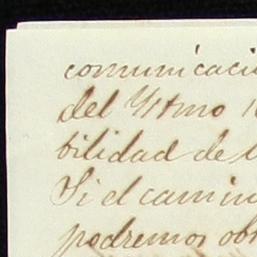 comunicaci
del Ystmo
bilidad de
Si el camin
podremos ob